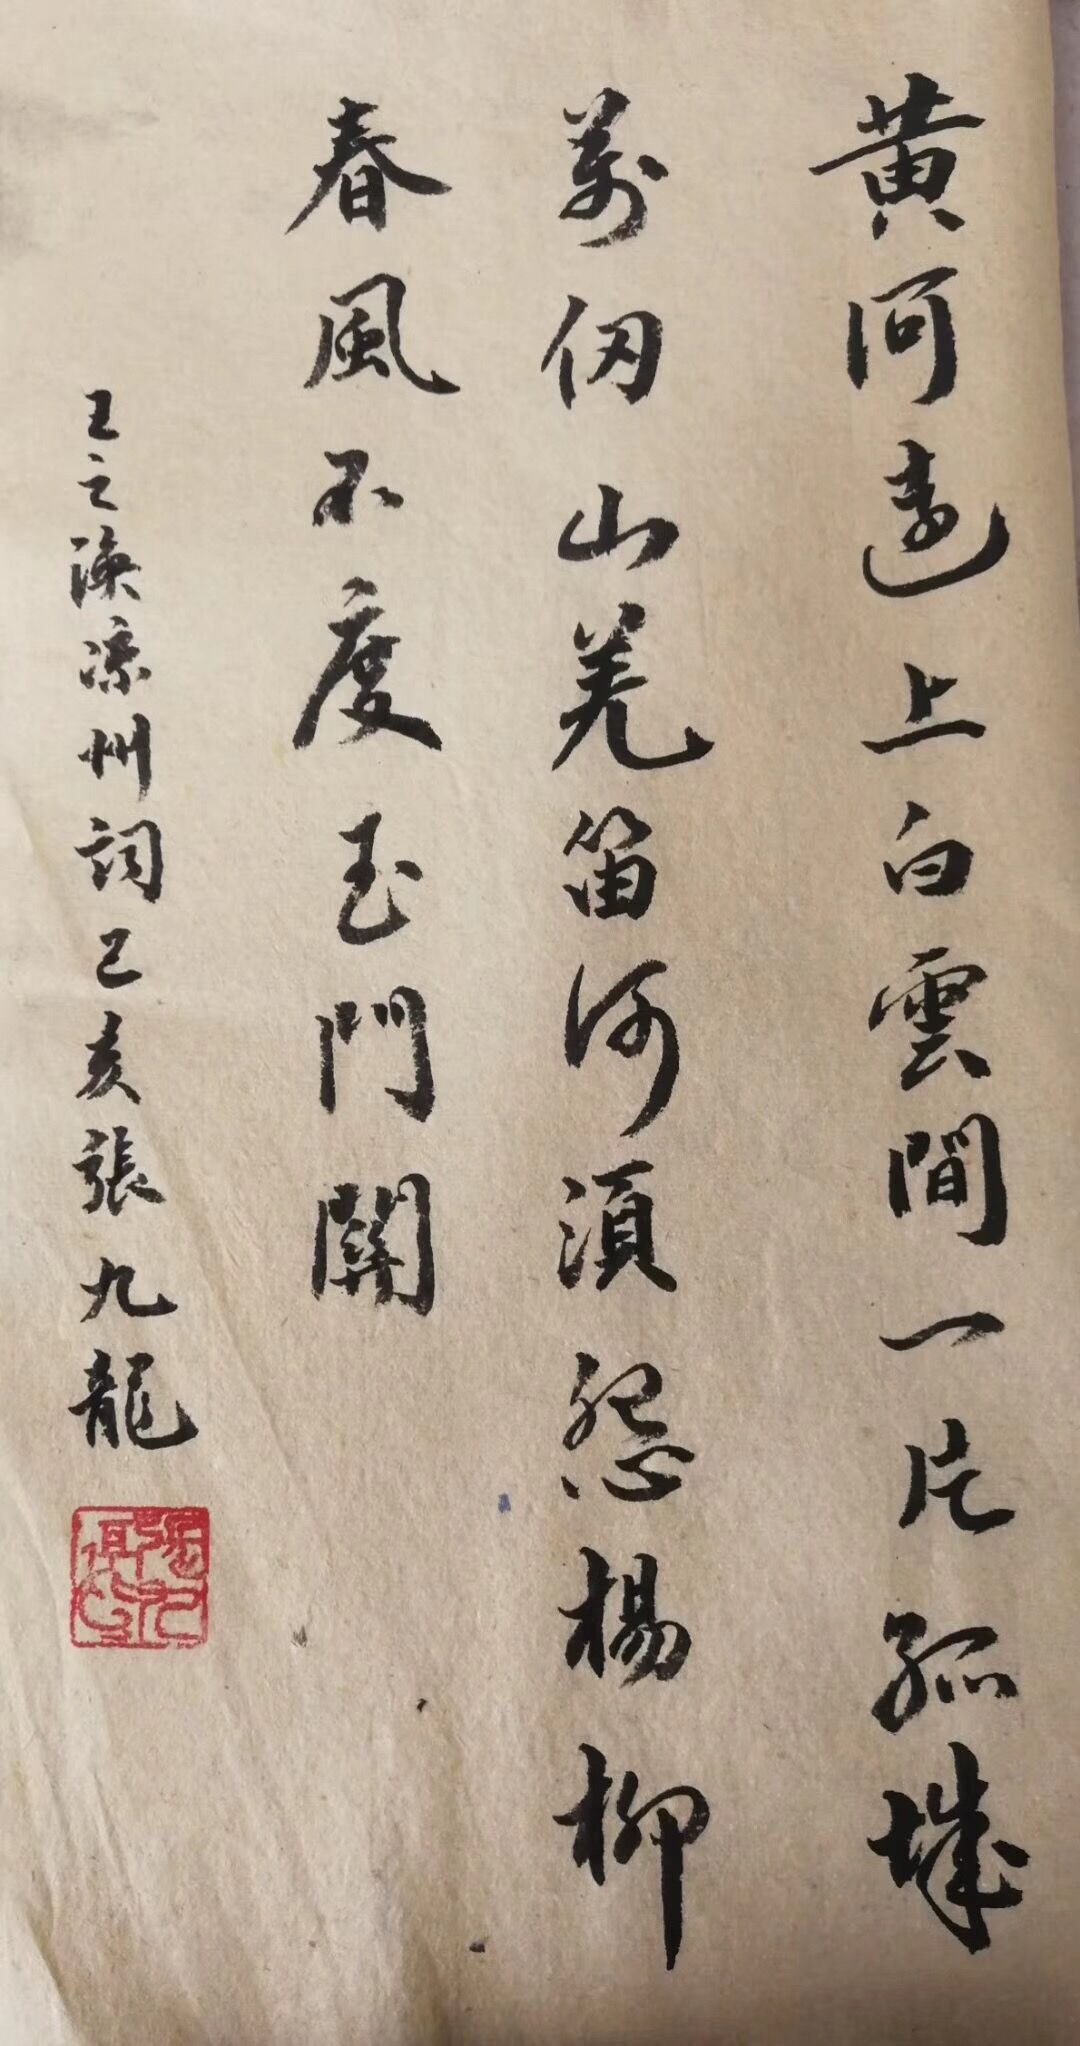 黄河遠上白雲間一片孤城
萬仞山羌笛何須怨楊柳
春風不度玉門關
王之渙涼州詞己亥張九龍